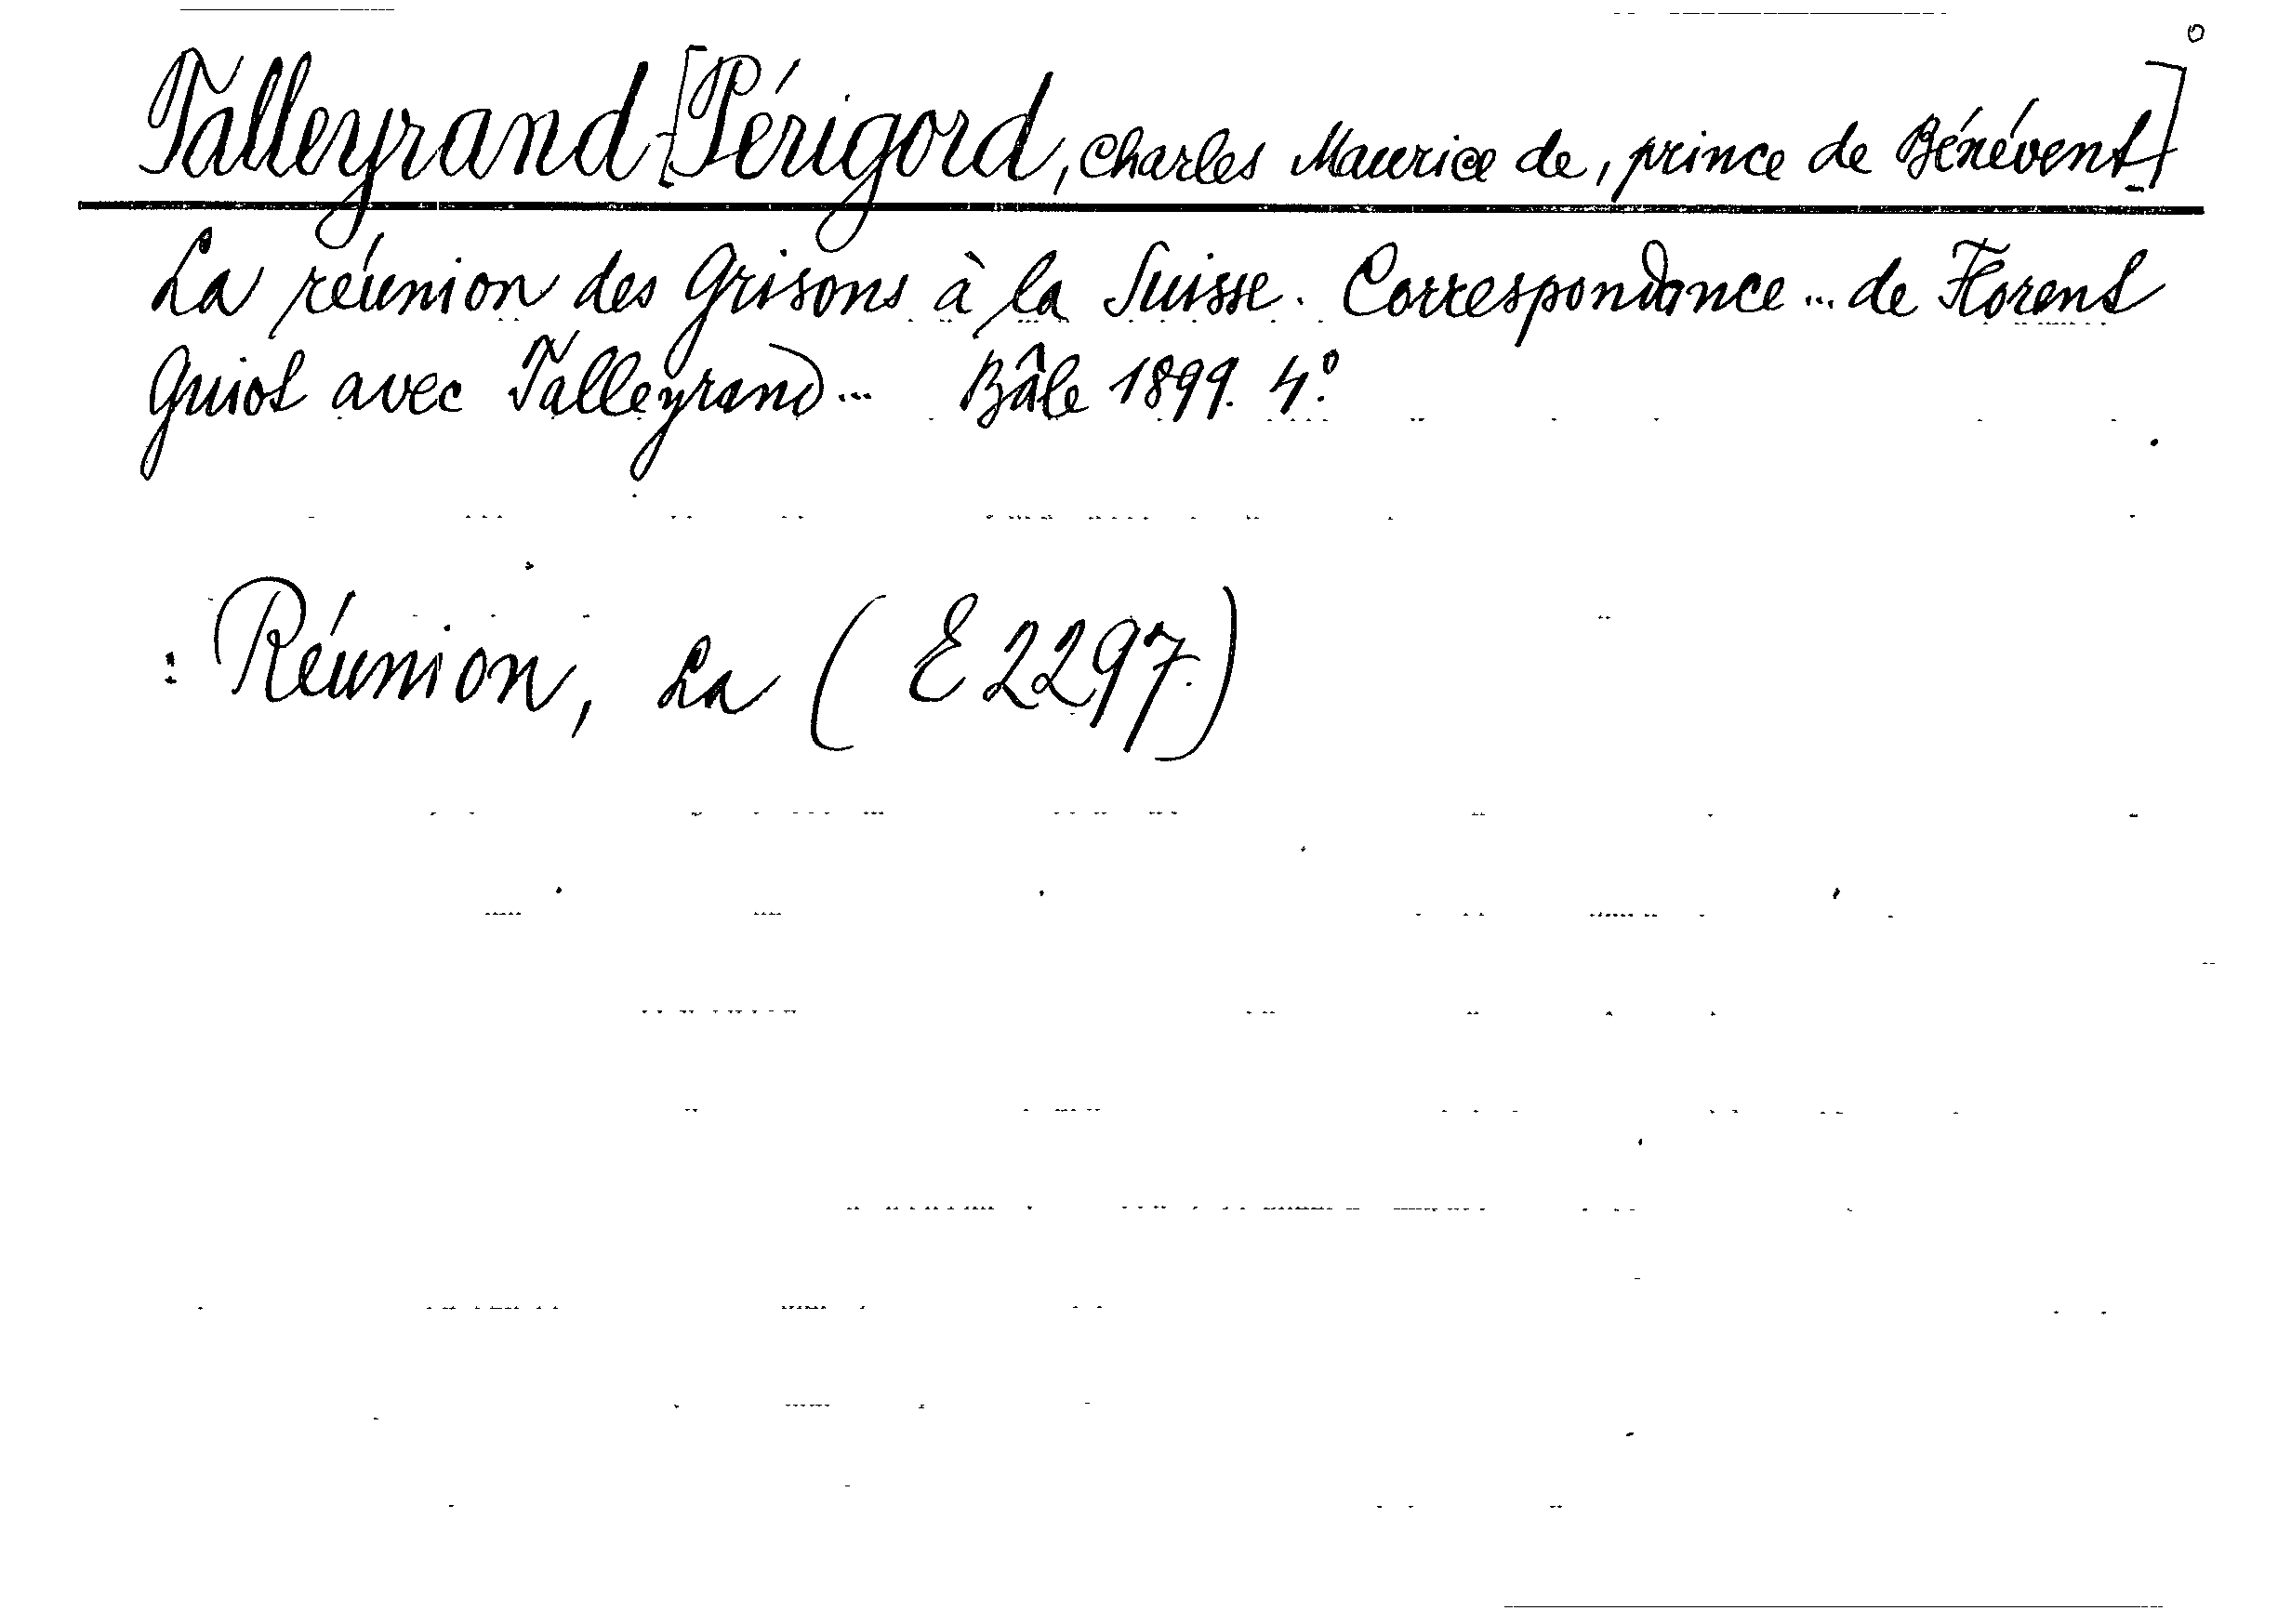 Talleyrand-[Périgord, Charles Maurice de, prince de Bénévent]
La réunion des Grisons à la Suisse. Correspondance ... de Florent
Guiot avec Talleyrand ... Bâle 1899. 4°.
: Réunion, La (E 2297.)